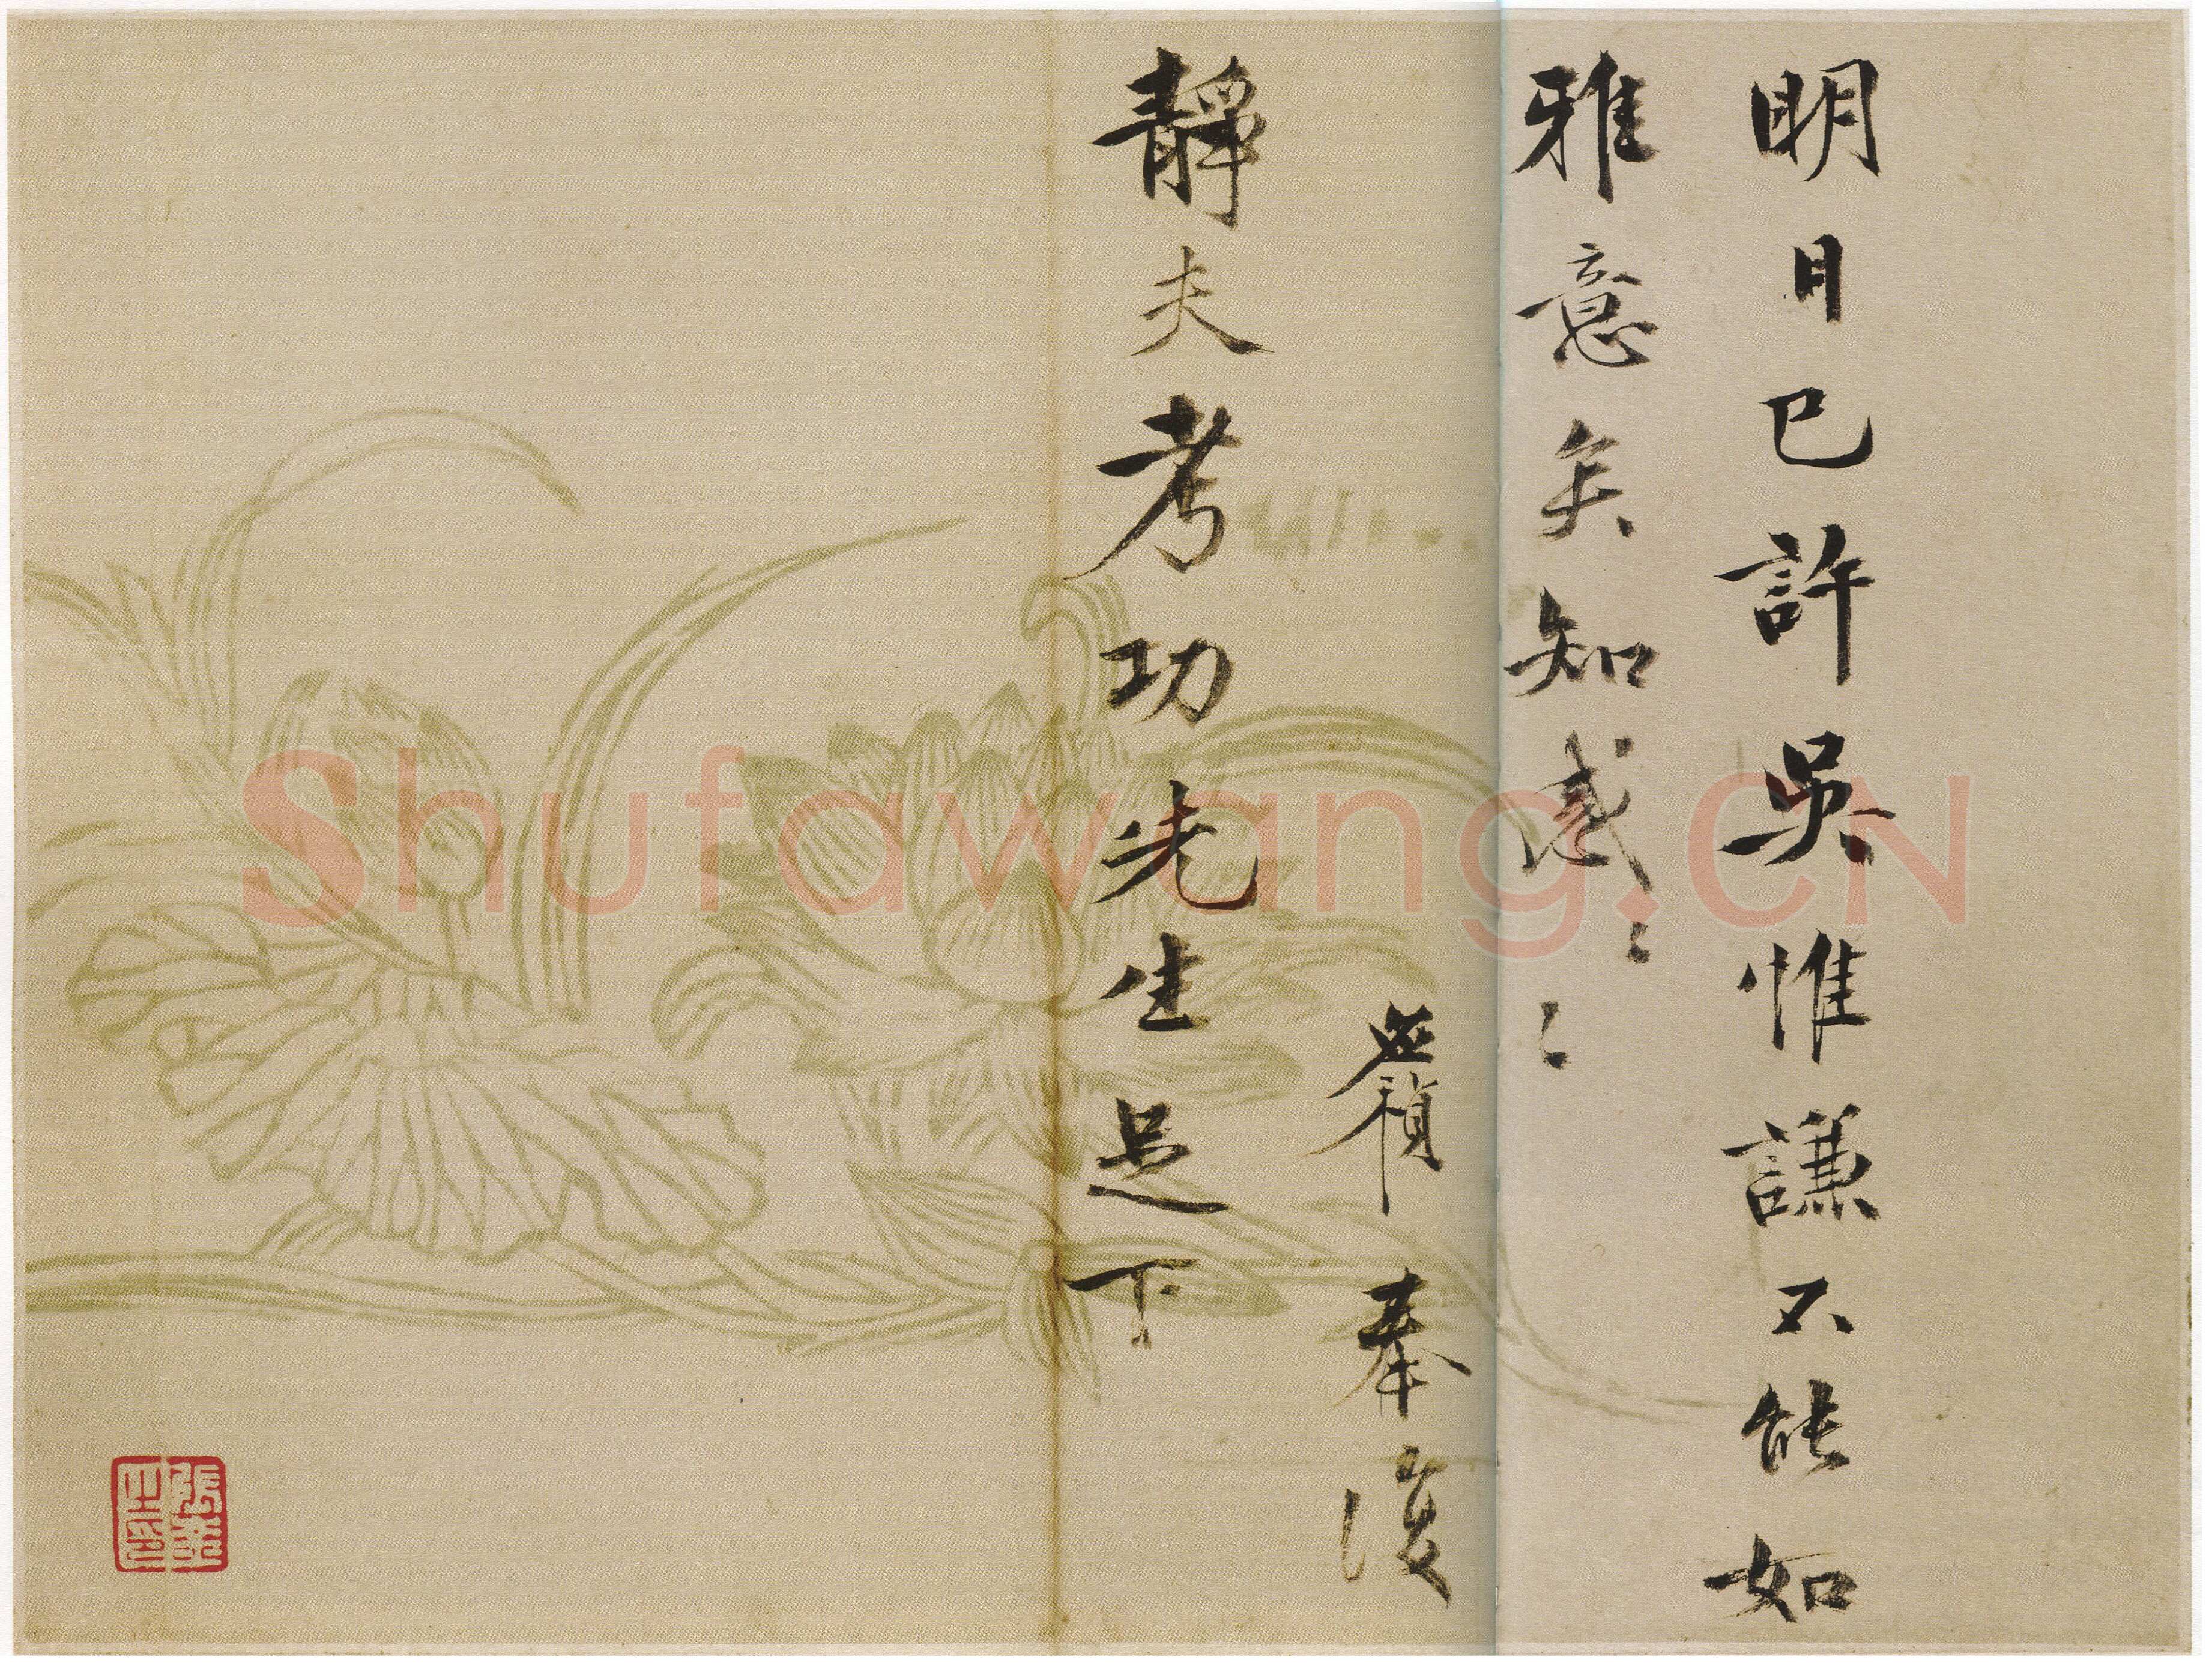 明日已許吳惟謙不能如
雅意矣知感〻〻
應禎奉復
靜夫考功先生足下
Shufawang.CN